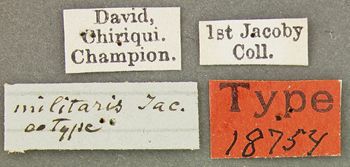 David,
Chiriqui.
Champion.
1st Jacoby
Coll.
militaris Jac.
coType
Type
18754